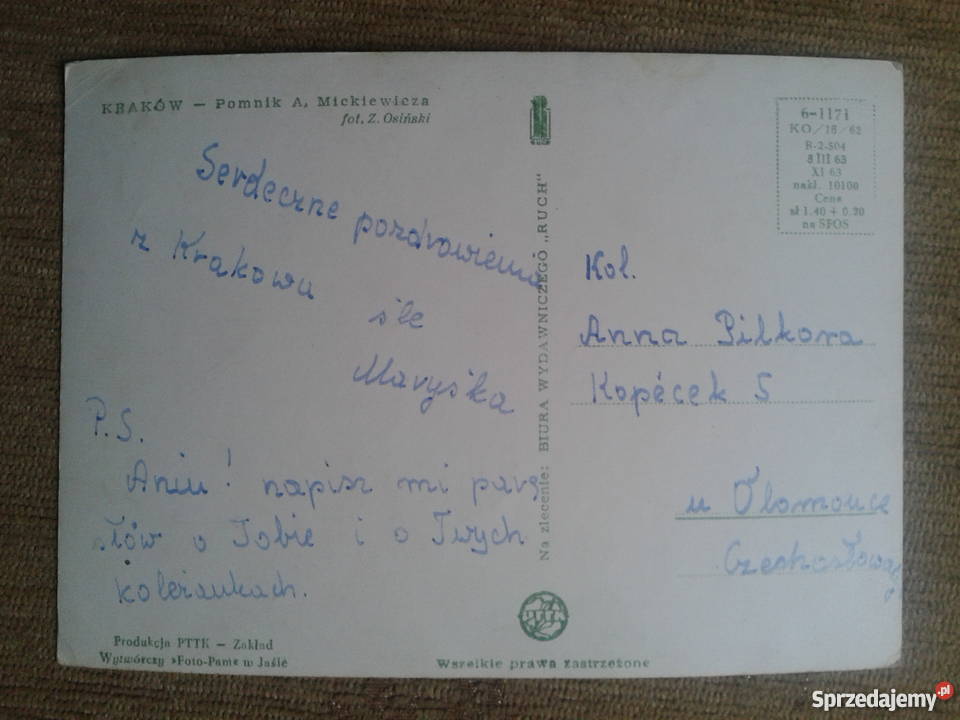 KRAKÓW — Pomnik A. Mickiewicza
fot. Z. Osiński
Serdeczne pozdrowienia
z Krakowa
śle
Maryśka
P.S.
Aniu! napisz mi parę
słów o Tobie i o Twych
koleżankach.
Produkcja PTTK — Zakład
Wytwórczy »Foto-Pam« w Jaśle
Na zlecenie: BIURA WYDAWNICZEGO „RUCH"
PTTK
Wszelkie prawa zastrzeżone
6-1171
KO/18/62
R-2-504
8 III 63
XI 63
nakł. 10100
Cena
zł 1.40 + 0.20
na SFOS
Kol.
Anna Pilkova
Kopéček 5
u Olomouce
Czechosłowacj
Sprzedajemy.pl